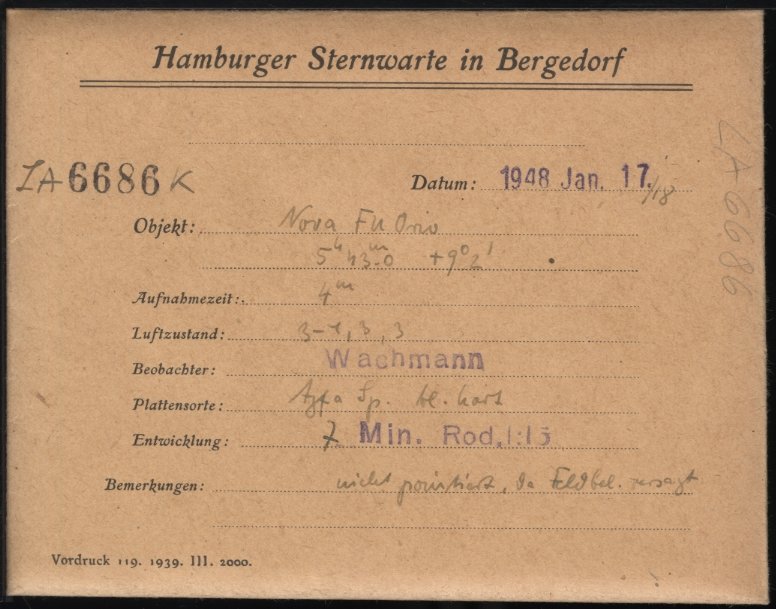 Hamburger Sternwarte in Bergedorf
LA 6686 K
Datum: 1948 Jan. 17./18
Objekt: Nova FU Orio
5ʰ 43ᵐ.0 +9° 2'
Aufnahmezeit: 4ᵐ
Luftzustand: 3-4, 3, 3
Beobachter: Wachmann
Plattensorte: Agfa Sp. bl. hart
Entwicklung: 7 Min. Rod. 1:15
Bemerkungen: nicht pointiert, da Feldbel. versagt
Vordruck 119. 1939. III. 2000.
LA 6686